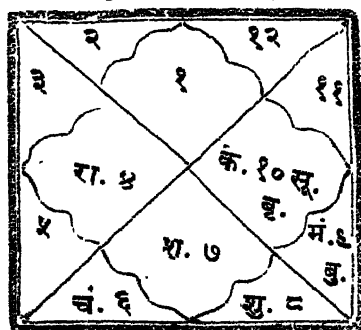 २ १२
३ १ ११
रा. ४ कं. १० सू.
बृ.
५ श. ७ मं. ९
बु.
चं. ६ शु. ८